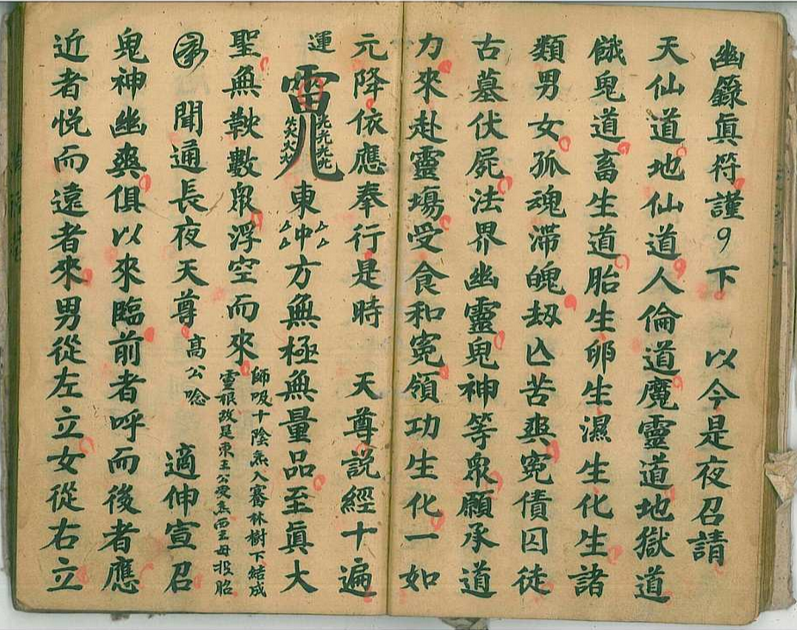 幽籙眞符謹9下 以今是夜召請
天仙道地仙道人倫道魔靈道地獄道
餓鬼道畜生道胎生卵生濕生化生諸
類男女孤魂滯魄劫亾苦爽冤債囚徒
古墓伏屍法界幽靈鬼神等衆願承道
力來赴靈場受食和冤領功生化一如
元降依應奉行是時 天尊説經十遍
運 東 中 方無極無量品至眞大
聖無鞅數衆浮空而來 師吸十陰炁入審林樹下結成
靈根改是東王公受炁西王母投胎
聞通長夜天尊 高公唸 適伸宣召
鬼神幽爽俱以來臨前者呼而後者應
近者悦而遠者來男從左立女從右立